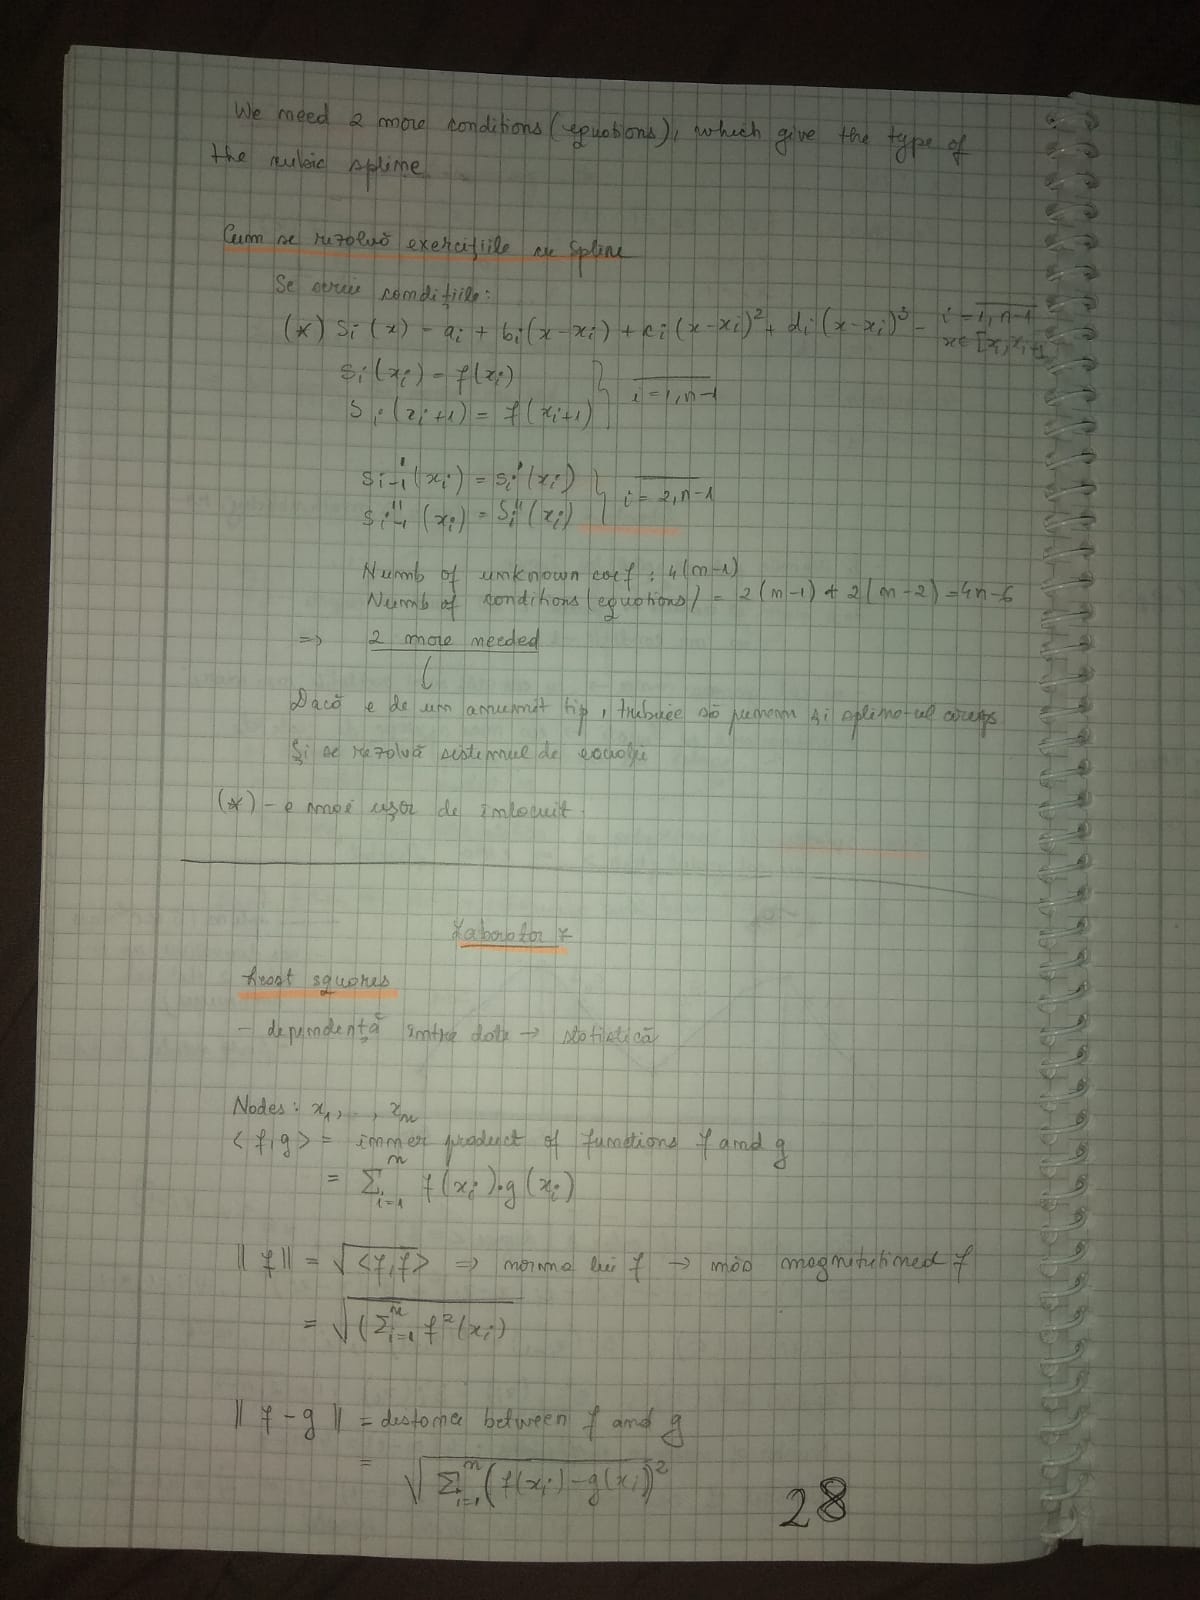 We need 2 more conditions (equations), which give the type of
the cubic spline
Cum se rezolvă exercițiile cu Spline
Se scriu condițiile:
(*) Si(x) = ai + bi(x-xi) + ci(x-xi)² + di(x-xi)³ - i = 1,n-1
x∈[xi, xi+1
Si(xi) = f(xi)
Si(xi+1) = f(xi+1) } i = 1,n-1
Si-1'(xi) = Si'(xi)
Si-1''(xi) = Si''(xi) } i = 2,n-1
Numb of unknown coef : 4(n-1)
Numb of conditions (equations) = 2(n-1) + 2(n-2) = 4n-6
=> 2 more needed
Dacă e de un anumit tip, trebuie să punem și spline-ul
Și se rezolvă sistemul de
(*) - e mai ușor de înlocuit.
Laborator 7
Least squares
- dependență între date → statistică
Nodes: x1, .. , xn
<f,g> = inner product of functions f and g
= Σi=1n f(xi)·g(xi)
||f|| = √<f,f> => norma lui f → măs magnitutined f
= √(Σi=1n f²(xi)
||f-g|| = distance between f and g
= √Σi=1n (f(xi)-g(xi))²
28